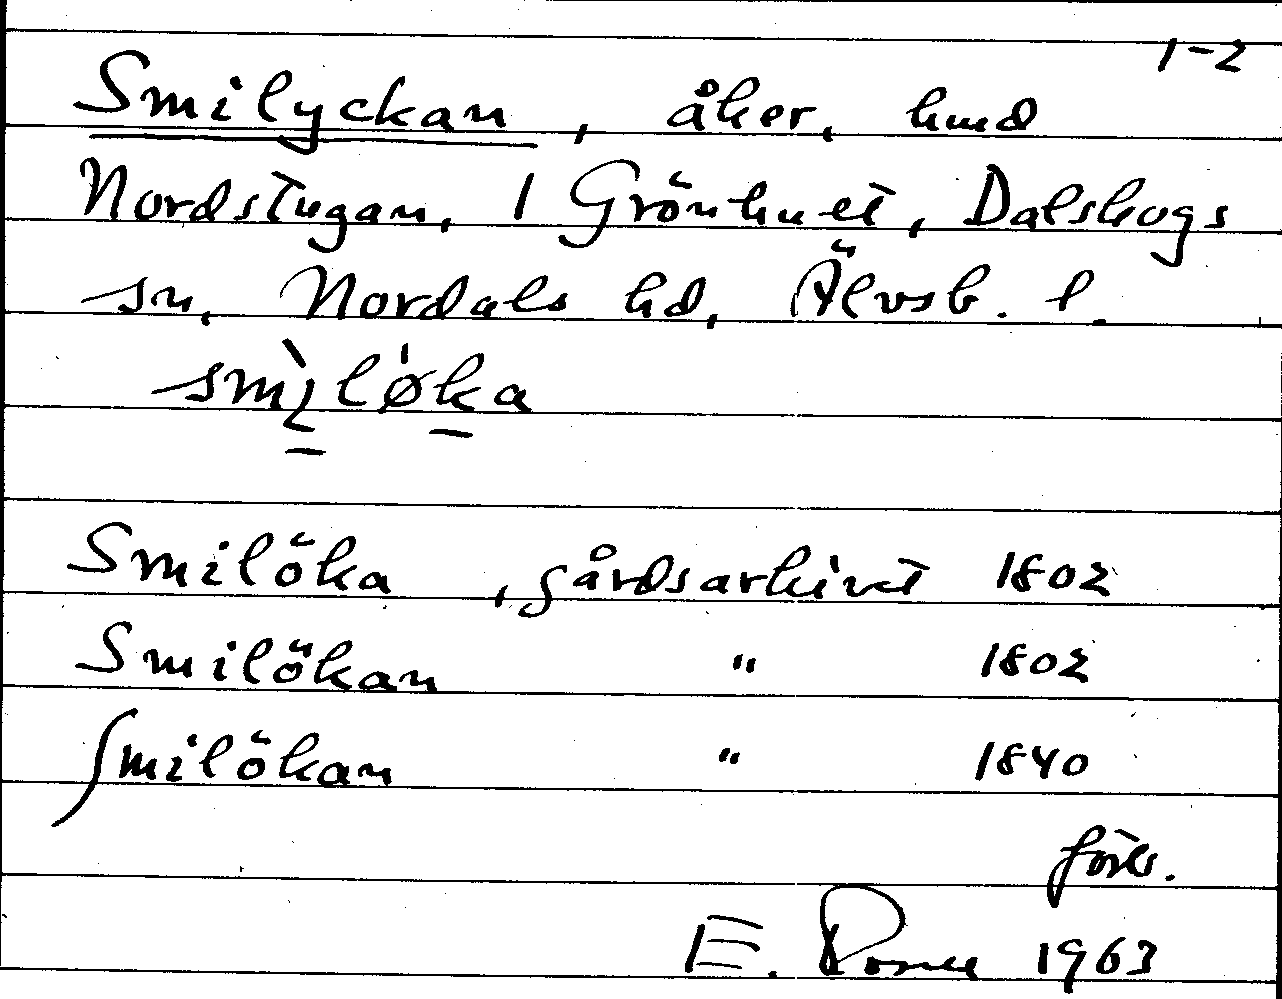 1-2
Smilyckan, åker, hmd
Nordstugan, 1 Grönhult, Dalskogs
sn, Nordals hd, Älvsb. l.
smìlø̍ka
Smilöka, gårdsarkivet 1802
Smilökan " 1802
Smilökan " 1840
förts.
E. 1963